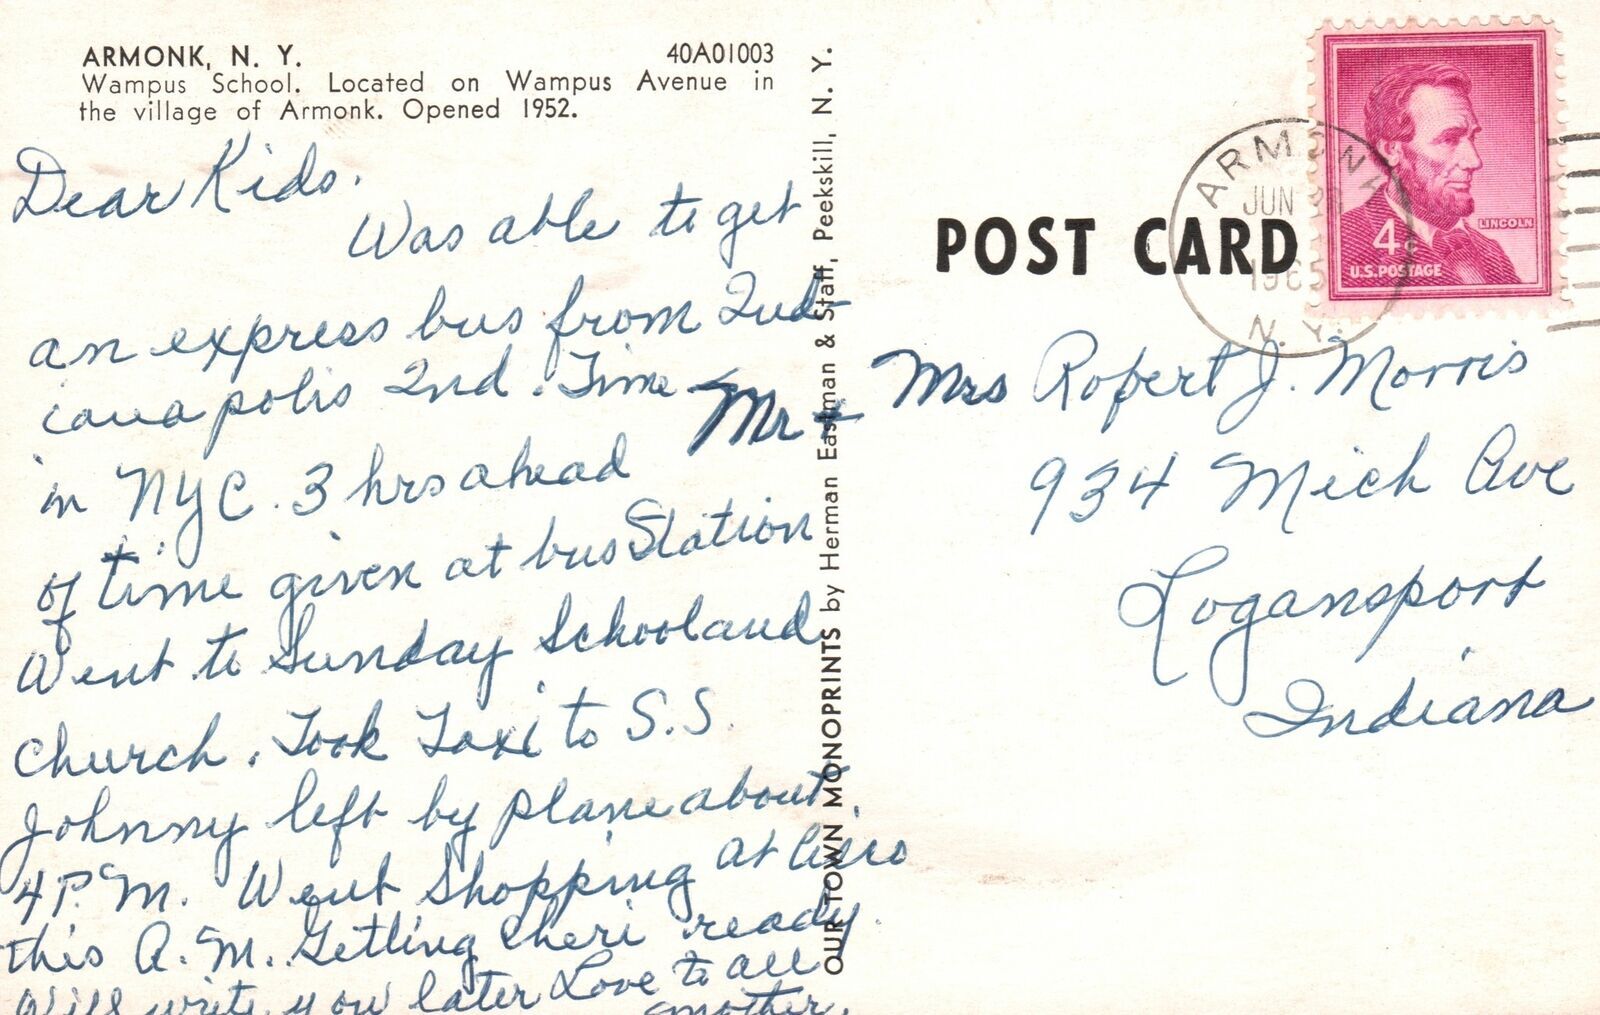 ARMONK, N. Y. 40A01003
Wampus School. Located on Wampus Avenue in
the village of Armonk. Opened 1952.
Dear Kids.
Was able to get
an express bus from Ind-
ianapolis Ind. Time
in NYC. 3 hrs ahead
of time given at bus Station
Went to Sunday School and
Church. Took Taxi to S.S.
Johnny left by plane about
4 P.M. Went Shopping at
this A.M. Getting Cheri ready.
Will write you later Love to all
Mother.
OUR TOWN MONOPRINTS by Herman Eastman & Staff, Peekskill, N. Y.
POST CARD
ARMONK
JUN
1965
N. Y.
LINCOLN
4¢
U.S. POSTAGE
Mr + Mrs Robert J. Morris
934 Mich Ave
Logansport
Indiana